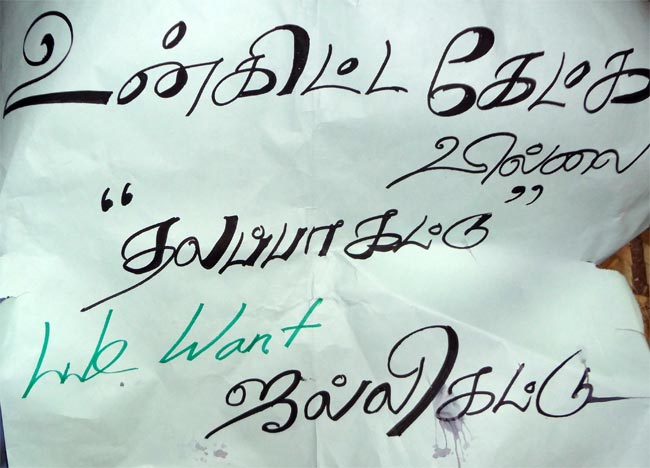 உன்கிட்ட கேட்க
வில்லை
“தலப்பாகட்டு”
We Want
ஜல்லிகட்டு